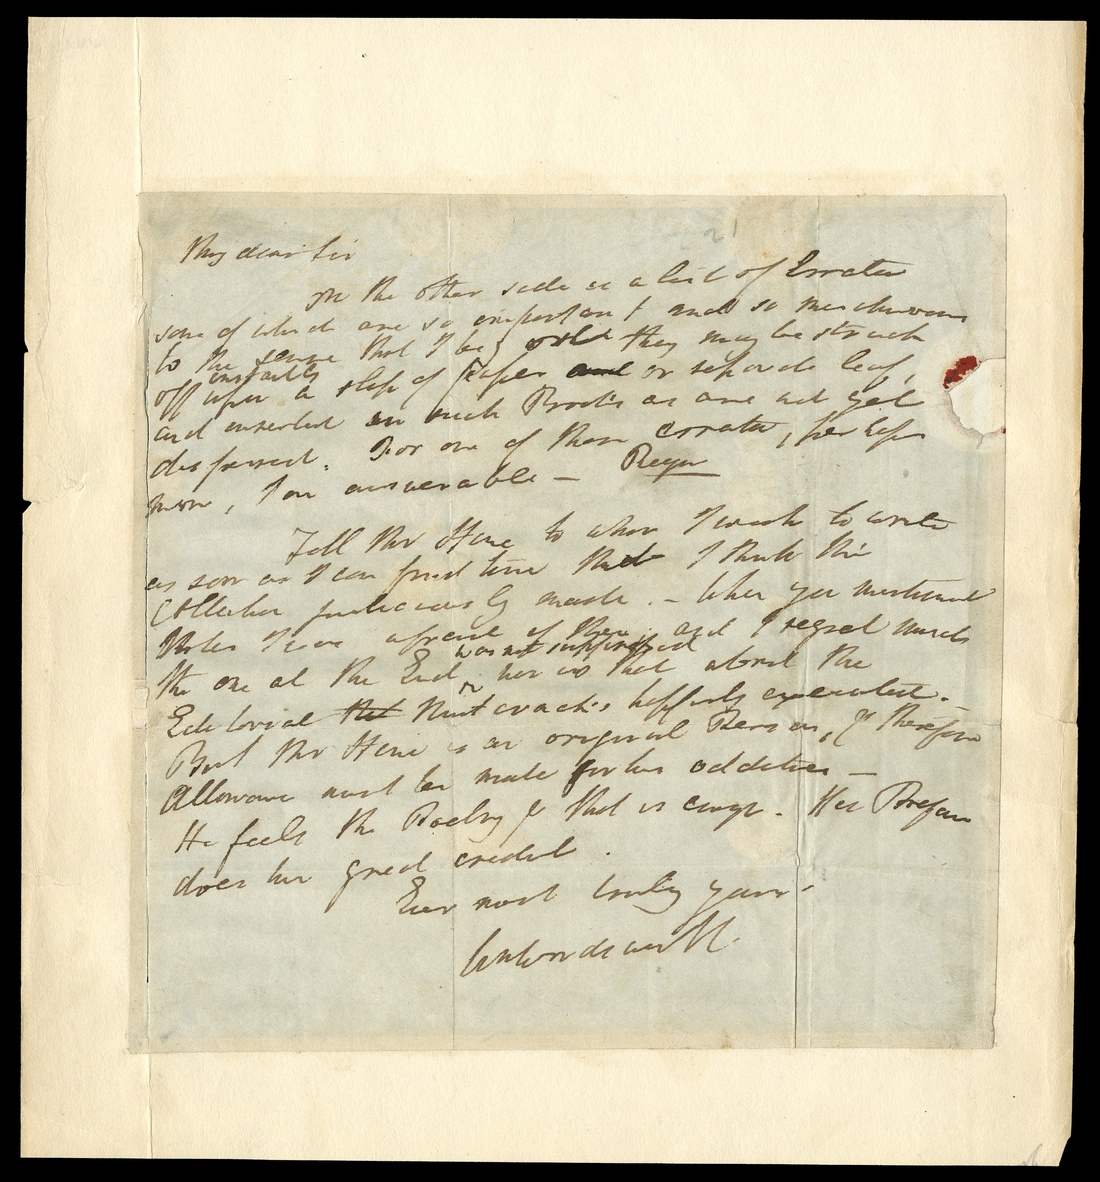 My dear Sir
On the other side is a list of Errata
some of which are so important and so mischievous
to the sense that I beg they may be struck
off instantly upon a slip of paper or separate leaf,
and inserted in such Books as are not yet
dispersed. For one of these errata, perhaps
more, I am answerable —
Tell Mr Hine to whom I wish to write
as soon as I can find time that I think the
Collection judiciously made. — When you mentioned
Notes I was afraid of them and I regret much
the one at the End was not suppressed nor is that about the
Editorial Nutcrackers happily executed. —
But Mr Hine is an original Person, & therefore
Allowance must be made for his oddities —
He feels the Poetry & that is enough. His Preface
does him great credit.
Ever most truly yours
Wm Wordsworth